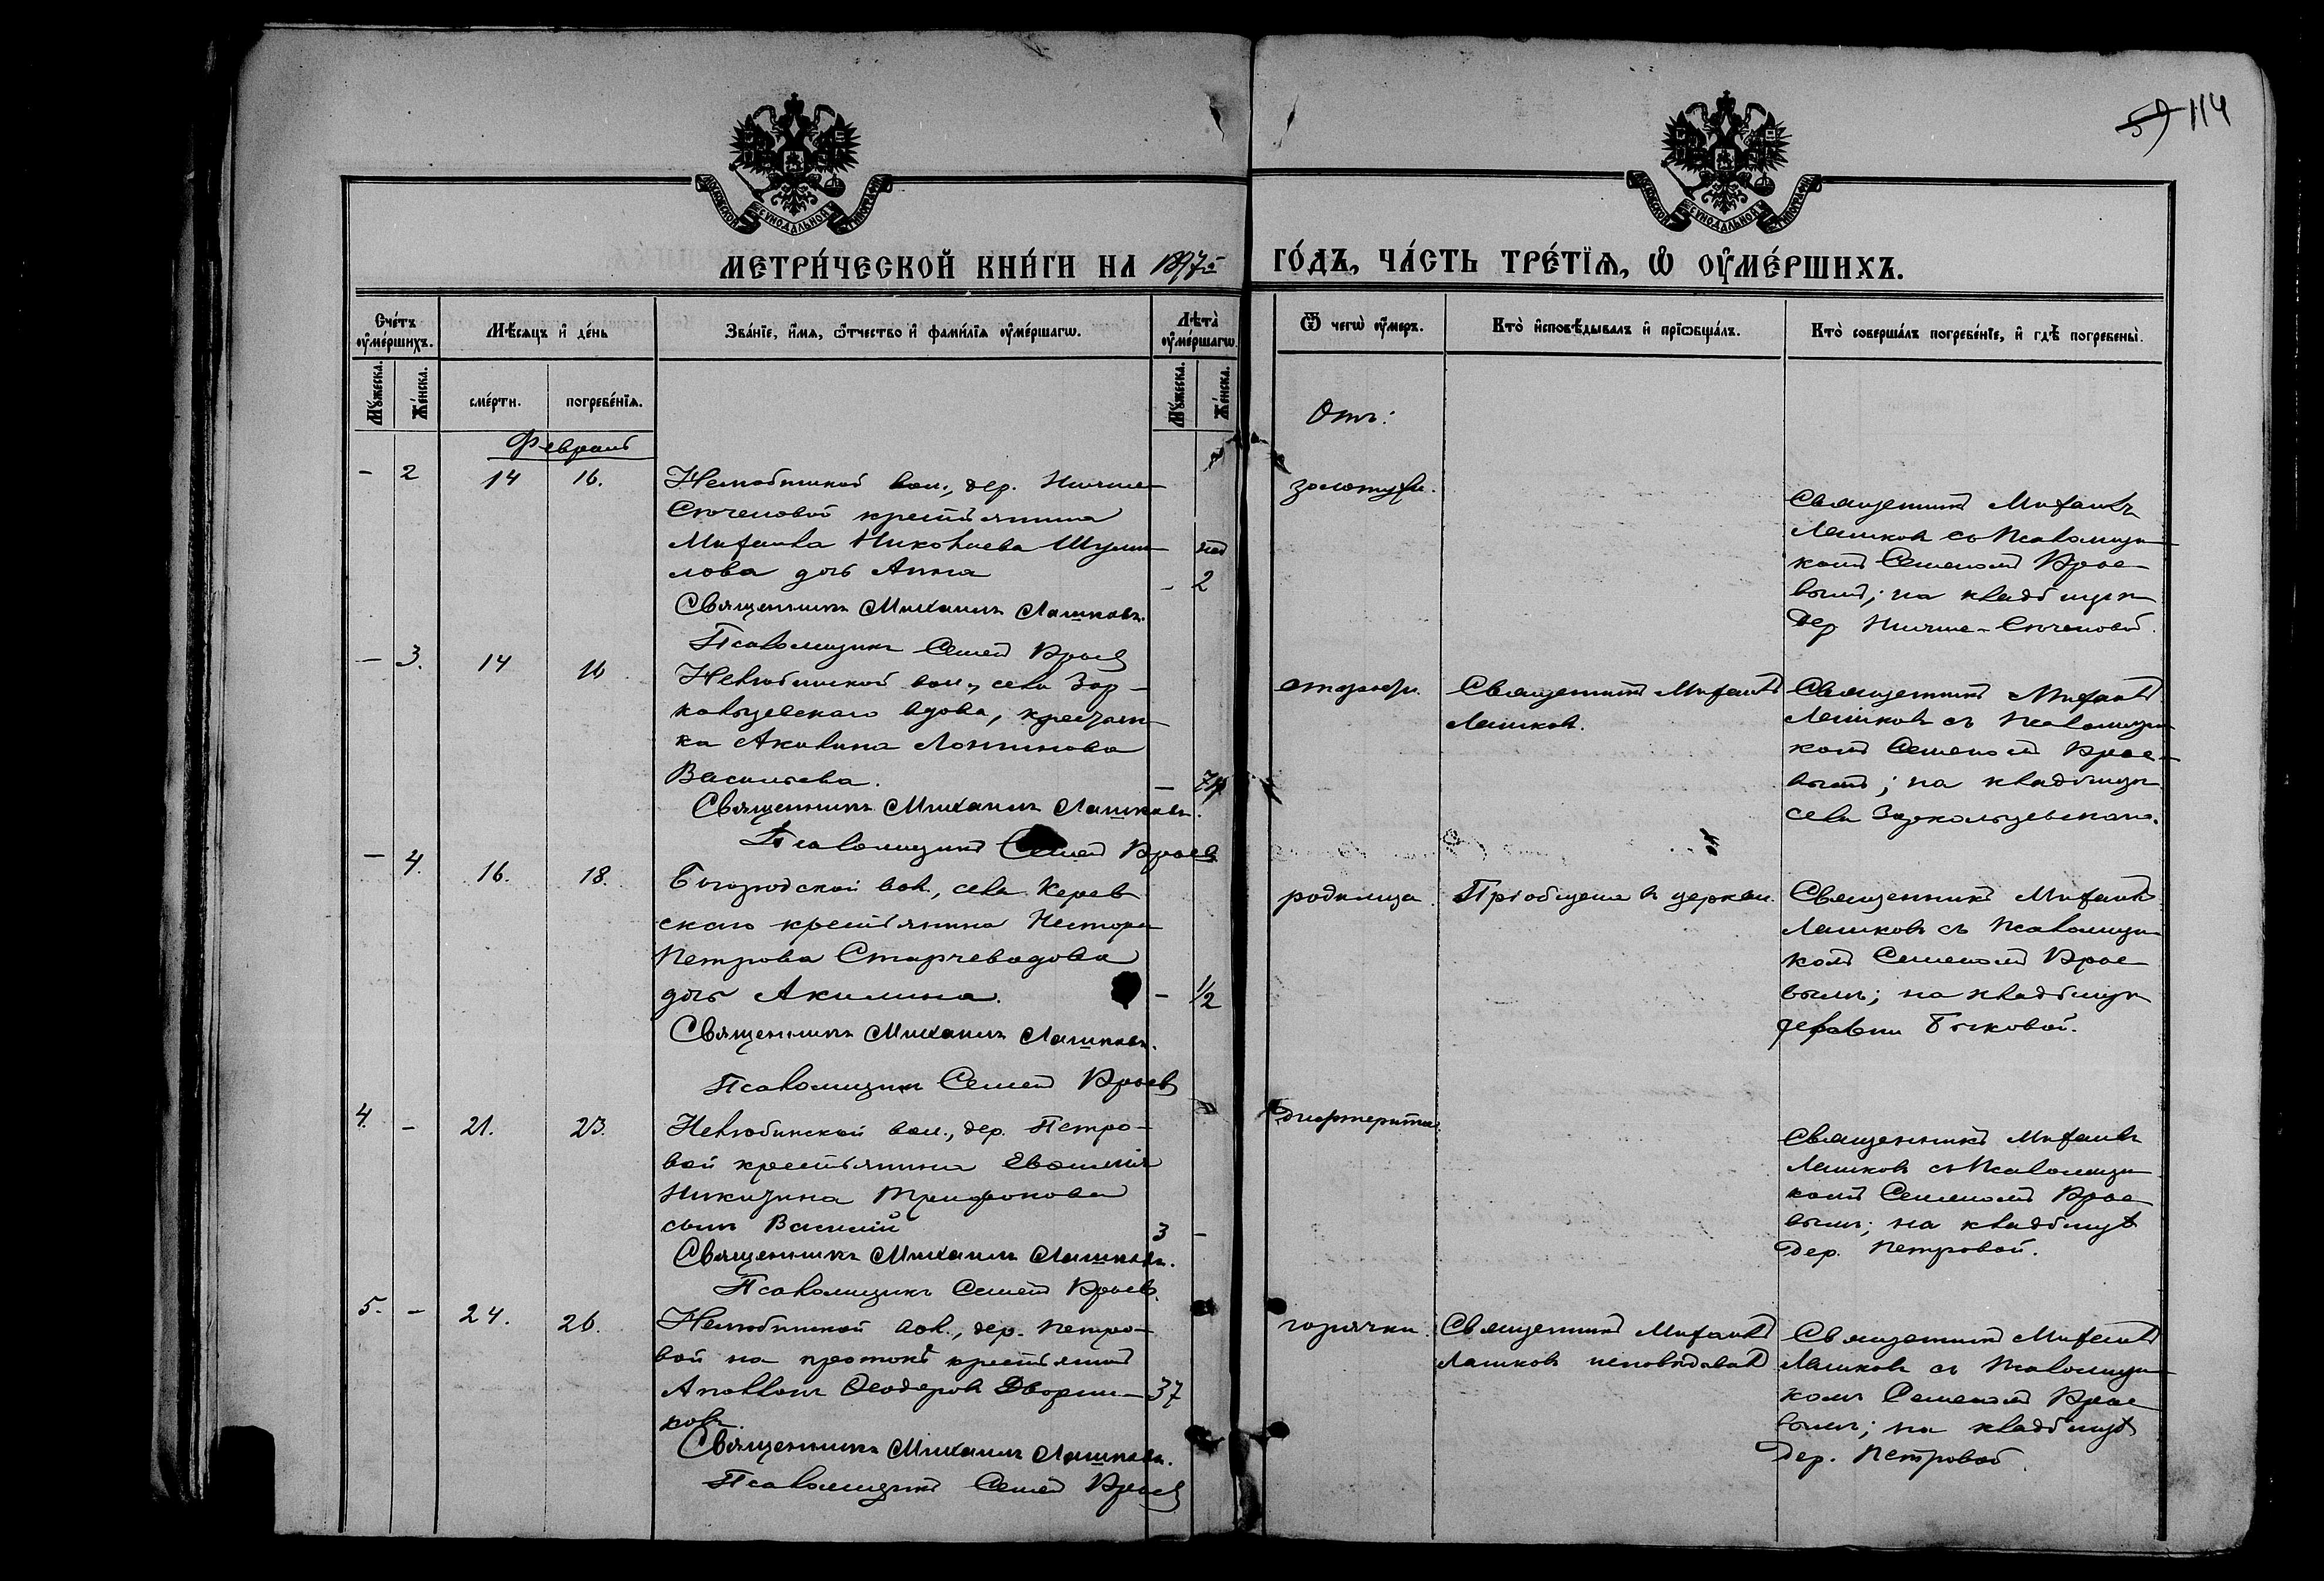 59 114
МОСКОВСКОЙ СУНОДАЛЬНОЙ ТИПОГРАФІИ
МОСКОВСКОЙ СУНОДАЛЬНОЙ ТИПОГРАФІИ
МЕТРИ́ЧЕСКОЙ КНИ́ГИ НА 1897й ГО́ДЪ, ЧА́СТЬ ТРЕ́ТЇѦ, Ѡ҆ ОУ҆МЕ́РШИХЪ.
Сче́тъ оу҆ме́ршихъ.
Мѣ́сяцъ и҆ де́нь
Зва́нїе, и҆́мѧ, ѻ҆́тчество и҆ фами́лїѧ оу҆ме́ршагѡ.
Лѣта̀ оу҆ме́ршагѡ.
Ѿ чегѡ̀ оу҆́меръ.
Кто̀ и҆сповѣ́дывалъ и҆ прїѡбща́лъ.
Кто̀ соверша́лъ погребе́нїе, и҆ гдѣ̀ погребены̀.
Мꙋ́жеска.
Же́нска.
сме́рти.
погребе́нїѧ.
Мꙋ́жеска.
Же́нска.
Февраль
Отъ:
- 2 14 16.
Нелюбинской вол., дер. Нижне-
Сеченовой крестьянина
Михаила Николаева Шуми-
лова дочь Анна
- 2
Священникъ Михаилъ Лашковъ.
Псаломщикъ Семен Краев
золотухи.
Священникъ Михаилъ
Лашковъ съ Псаломщи-
комъ Семеномъ Крае-
вымъ; на кладбищѣ
дер Нижне-Сеченовой.
- 3. 14 16
Нелюбинской вол., села Зор-
кальцевскаго вдова, крестьян-
ка Акилина Логинова
Васильева.
Священникъ Михаилъ Лашковъ.
Псаломщикъ Семен Краев
старости
Священникъ Михаилъ
Лашковъ.
Священникъ Михаилъ
Лашковъ съ Псаломщи-
комъ Семеномъ Крае-
вымъ; на кладбищѣ
села Зоркальцевскаго.
- 4. 16. 18.
Богородской вол., села Керев
скаго крестьянина Нестора
Петрова
дочь Акилина.
- 1/2
Священникъ Михаилъ Лашковъ.
Псаломщикъ Семен Краев
родимца.
Пріобщена въ церкви.
Священникъ Михаилъ
Лашковъ съ Псаломщи-
комъ Семеномъ Крае
вымъ; на кладбищѣ
деревни Быковой.
4. - 21. 23.
Нелюбинской вол., дер. Петро-
вой крестьянина Евфимія
Никитина Трифонова
сынъ Василій
3 -
Священникъ Михаилъ Лашковъ.
Псаломщикъ Семен Краев.
дифтерита.
Священникъ Михаилъ
Лашковъ съ Псаломщи-
комъ Семеномъ Крае
вымъ; на кладбищѣ
дер. Петровой.
5. - 24. 26.
Нелюбинской вол., дер. Петро-
вой на протокѣ крестьянинъ
Аполлонъ Феодоровъ Дворни-
ковъ.
37
Священникъ Михаилъ Лашковъ.
Псаломщикъ Семен Краев
горячки.
Священникъ Михаилъ
Лашковъ исповѣдовалъ
Священникъ Михаилъ
Лашковъ съ Псаломщи-
комъ Семеномъ Крае
вымъ; на кладбищѣ
дер. Петровой.